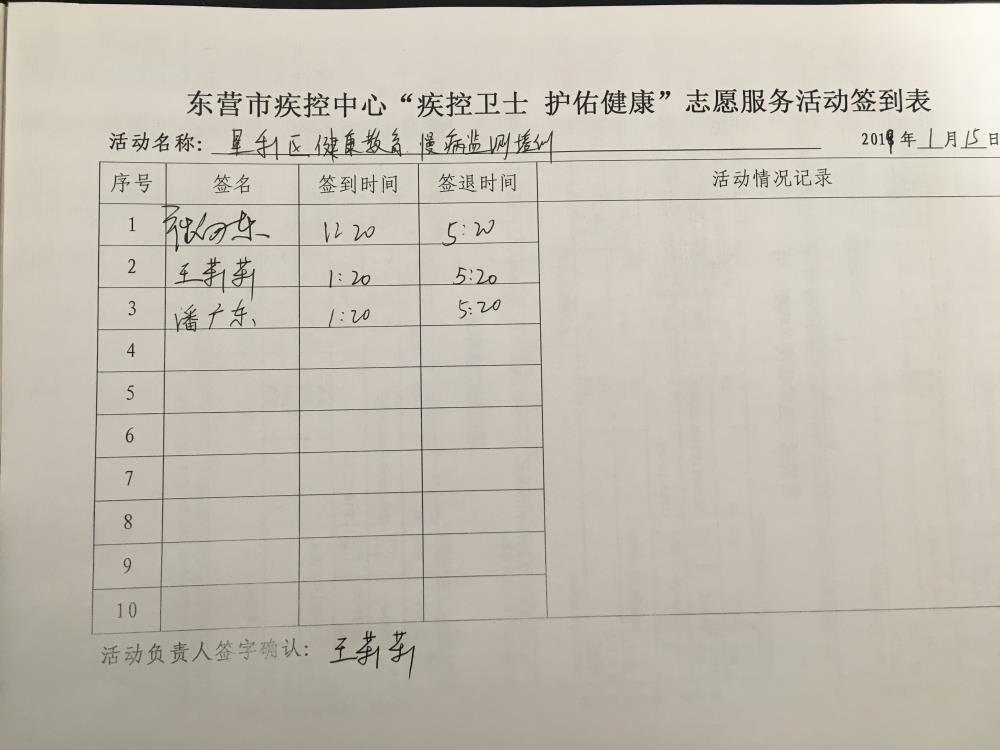 东营市疾控中心“疾控卫士 护佑健康”志愿服务活动签到表
活动名称：垦利区健康教育 慢病监测培训 2019年1月15日
序号 签名 签到时间 签退时间 活动情况记录
1 1:20 5:20
2 王莉莉 1:20 5:20
3 潘广东 1:20 5:20
4
5
6
7
8
9
10
活动负责人签字确认：王莉莉